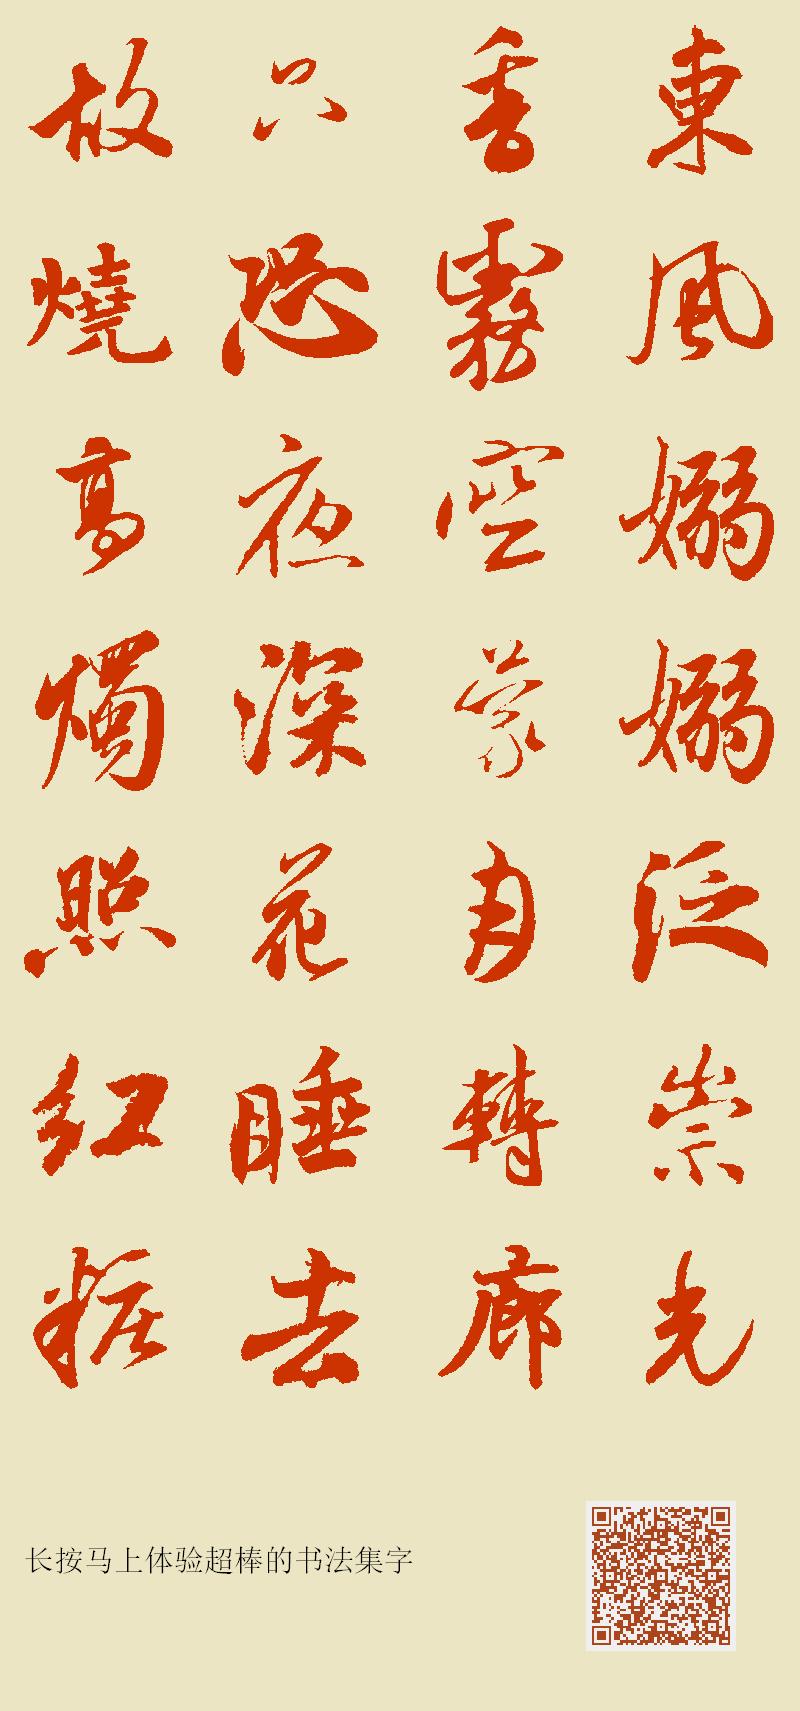 東風嫋嫋泛崇光
香霧空蒙月轉廊
只恐夜深花睡去
故燒高燭照紅粧
长按马上体验超棒的书法集字